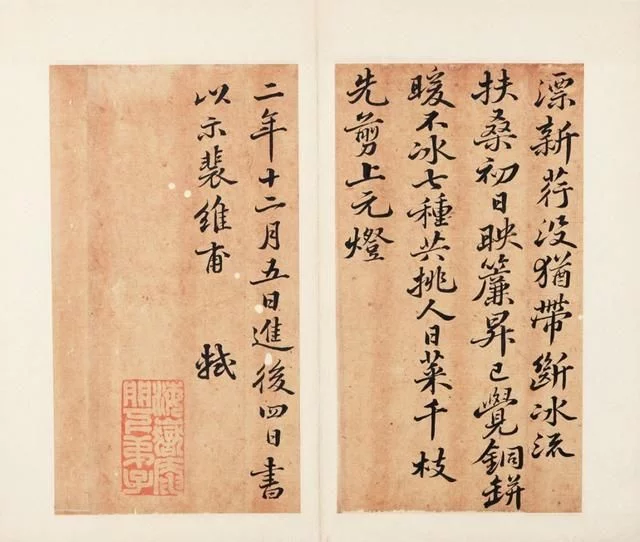 漂新荇没猶帶斷冰流
扶桑初日映簾昇已覺銅缾
暖不冰七種共挑人日菜千枝
先剪上元燈
二年十二月五日進後四日書
以示裴維甫 軾